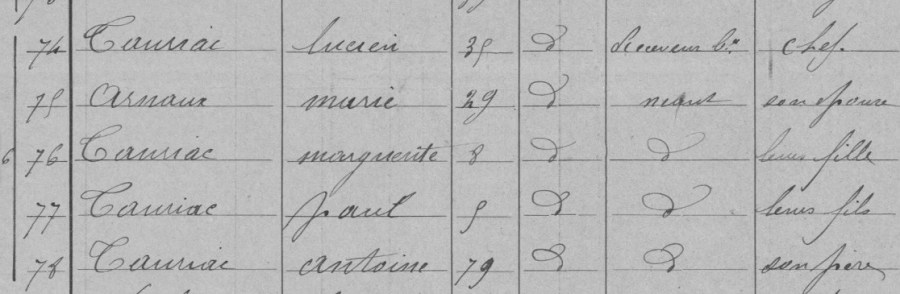 74 Tauriac lucien 35 d Receveur Bte chef
75 Arnaux marie 29 d neant son epouse
6 76 Tauriac marguerite 8 d d leur fille
77 Tauriac paul 5 d d leur fils
78 Tauriac antoine 79 d d son père